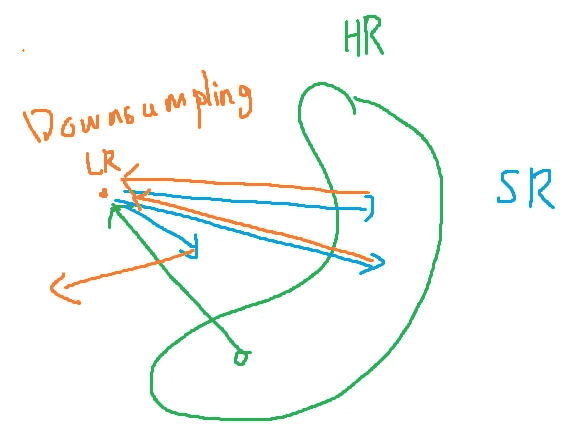 HR
Downsampling
LR
SR